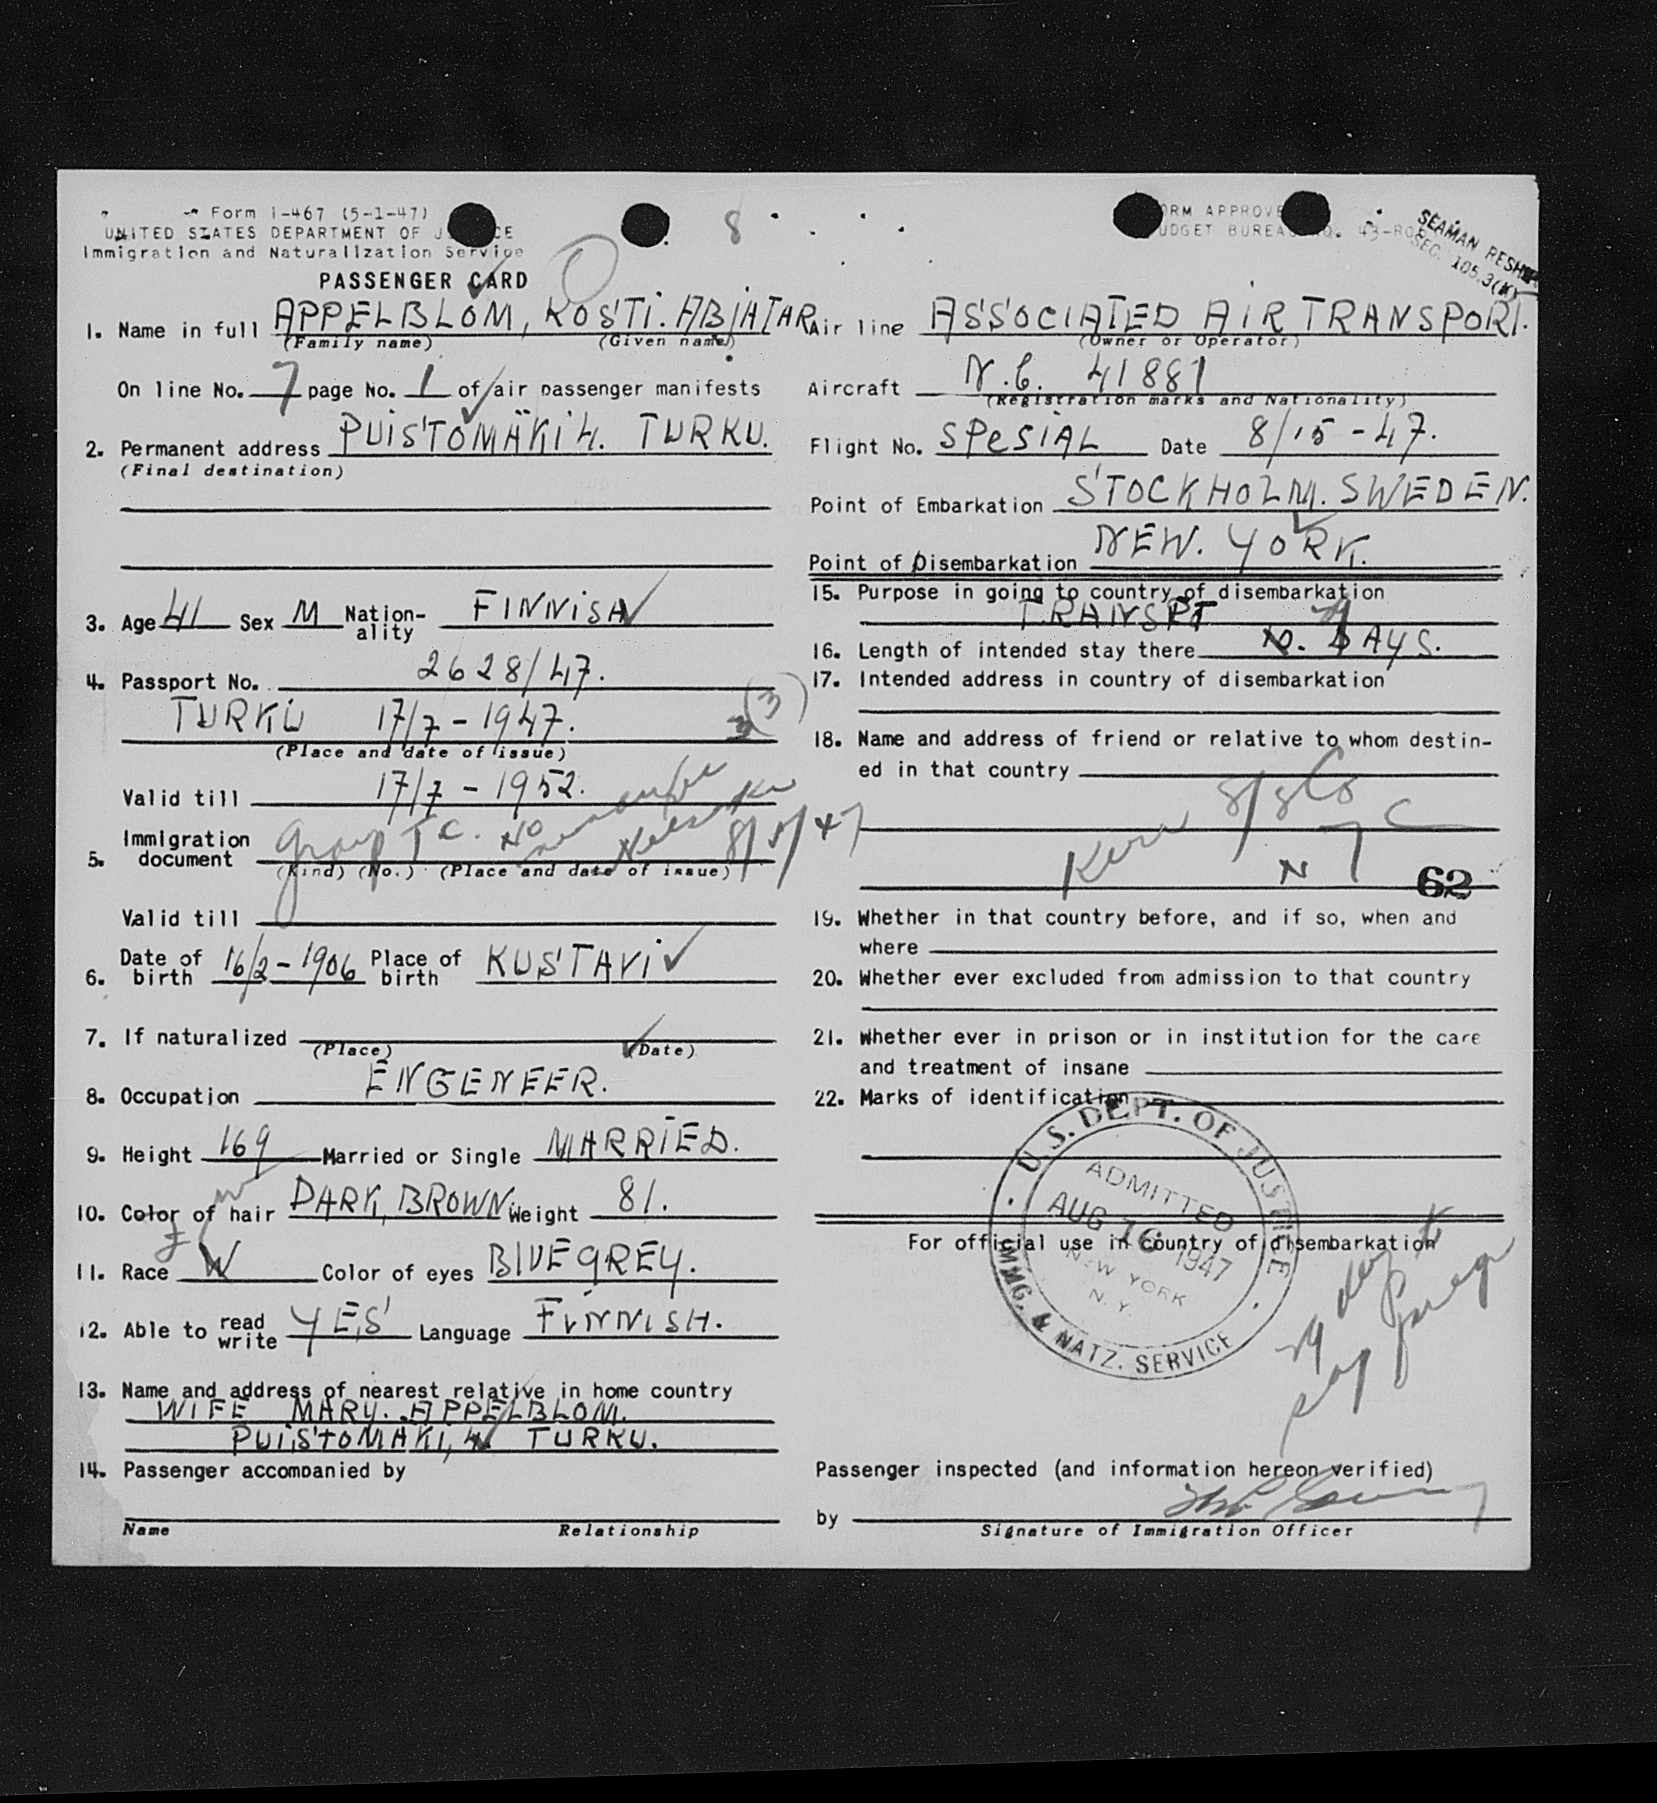 Form I-467 (5-1-47)
UNITED STATES DEPARTMENT OF J CE
Immigration and Naturalization Service
PASSENGER CARD
8
ORM APPROVE
UDGET BUREA O. 43-RO
SEAMAN RESH
SEC. 105.3(K)
1. Name in full APPELBLOM, KOSTI. ABIATAR
(Family name) (Given name)
On line No. 7 page No. 1 of air passenger manifests
2. Permanent address PUISTOMÄKI 4. TURKU.
(Final destination)
3. Age 41 Sex M Nation-ality FINNISH
4. Passport No. 2628/47.
TURKU 17/7 - 1947.
3 (3)
(Place and date of issue)
Valid till 17/7 - 1952.
5. Immigration document group T C. No Helsinki 8/5/47
(Kind) (No.) (Place and date of issue)
Valid till
6. Date of birth 16/2 - 1906 Place of birth KUSTAVI
7. If naturalized
(Place) (Date)
8. Occupation ENGENEER.
9. Height 169 Married or Single MARRIED.
10. Color of hair DARK, BROWN Weight 81.
11. Race W Color of eyes BLUEGREY.
12. Able to read write YES Language FINNISH.
13. Name and address of nearest relative in home country
WIFE MARY. APPELBLOM.
PUISTOMÄKI, 4. TURKU.
14. Passenger accompanied by
Name Relationship
Air line ASSOCIATED AIR TRANSPORT.
(Owner or Operator)
Aircraft N.C. 41881
(Registration marks and Nationality)
Flight No. SPESIAL Date 8/15 - 47.
Point of Embarkation STOCKHOLM. SWEDEN.
Point of Disembarkation NEW. YORK.
15. Purpose in going to country of disembarkation
TRANSPT
16. Length of intended stay there 29 DAYS.
17. Intended address in country of disembarkation
18. Name and address of friend or relative to whom destin-
ed in that country
Kerr S/S Co
N Y C
62
19. Whether in that country before, and if so, when and
where
20. Whether ever excluded from admission to that country
21. Whether ever in prison or in institution for the care
and treatment of insane
22. Marks of identification
U.S. DEPT. OF JUSTICE
ADMITTED
AUG 16 1947
NEW YORK
N. Y.
IMMG. & NATZ. SERVICE
For official use in country of disembarkation
29 day
Passenger inspected (and information hereon verified)
by
Signature of Immigration Officer